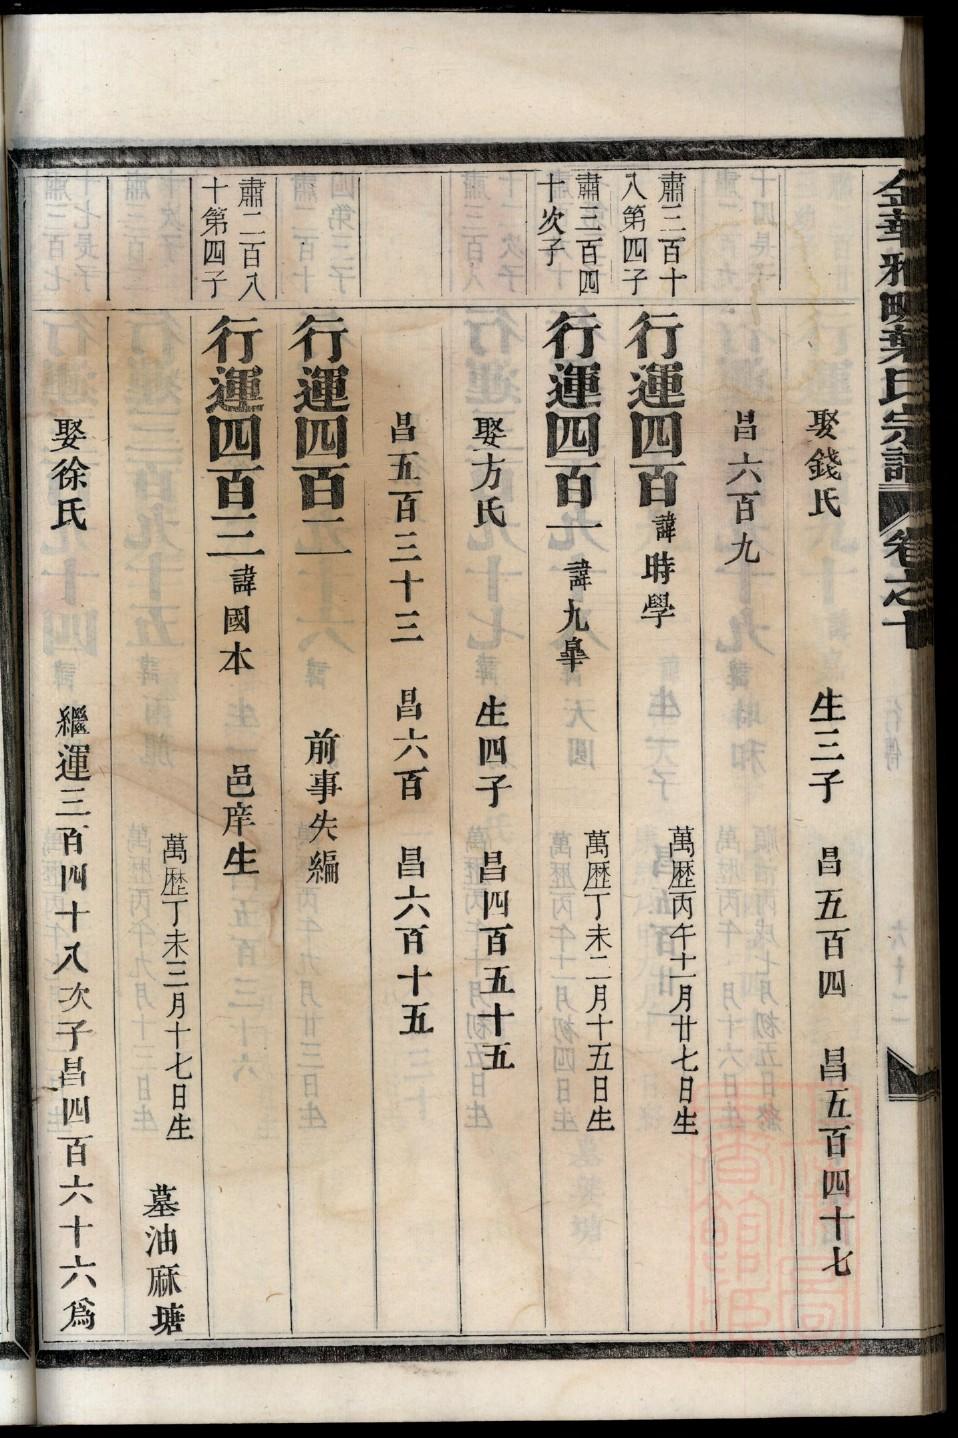 金華雅畈葉氏宗譜 卷之十
娶錢氏 生三子 昌五百四 昌五百四十七
昌六百九
肅三百十八第四子
行運四百 諱時學 萬歷丙午十一月廿七日生
肅三百四十次子
行運四百一 諱九臯 萬歷丁未二月十五日生
娶方氏 生四子 昌四百五十五
昌五百三十三 昌六百 昌六百十五
行運四百二 前事失編
肅二百八十第四子
行運四百三 諱國本 邑庠生
萬歷丁未三月十七日生 墓油麻塘
娶徐氏 繼運三百四十八次子昌四百六十六爲